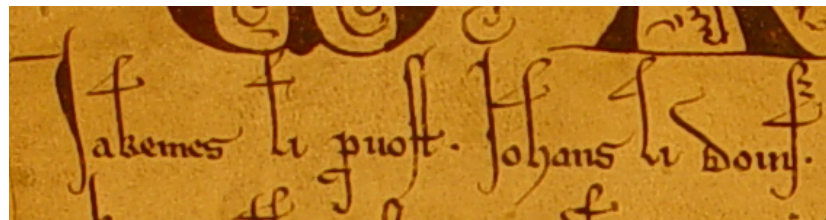 Jakemes li puost. Johans li